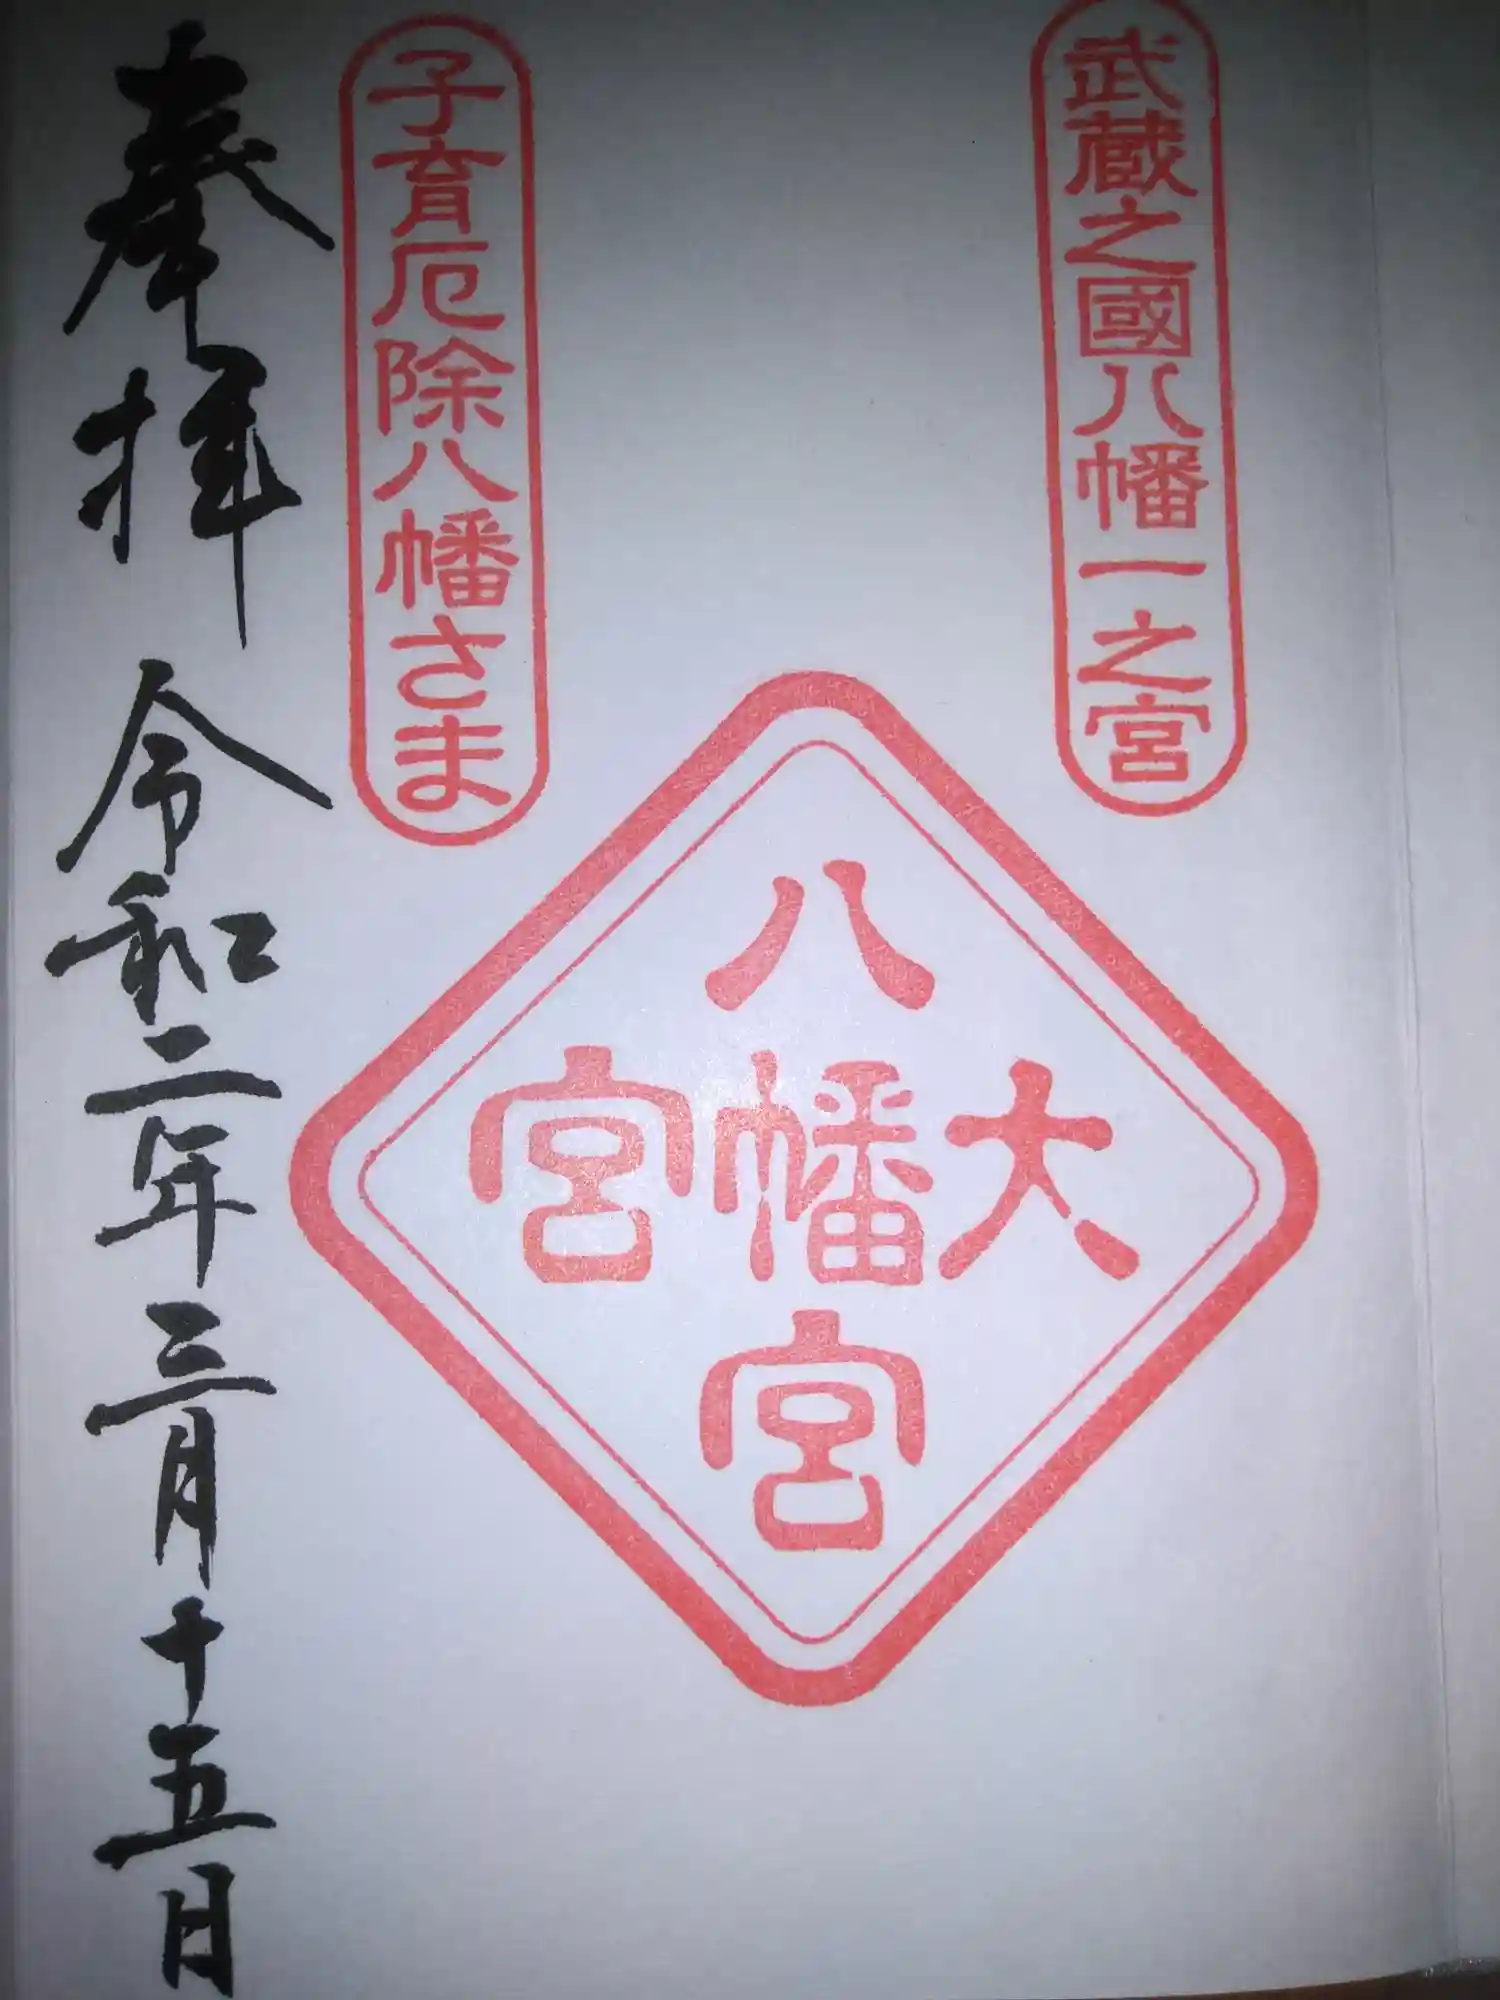 武蔵之國八幡一之宮
八
大幡宮
宮
子育厄除八幡さま
奉拝 令和二年三月十五日